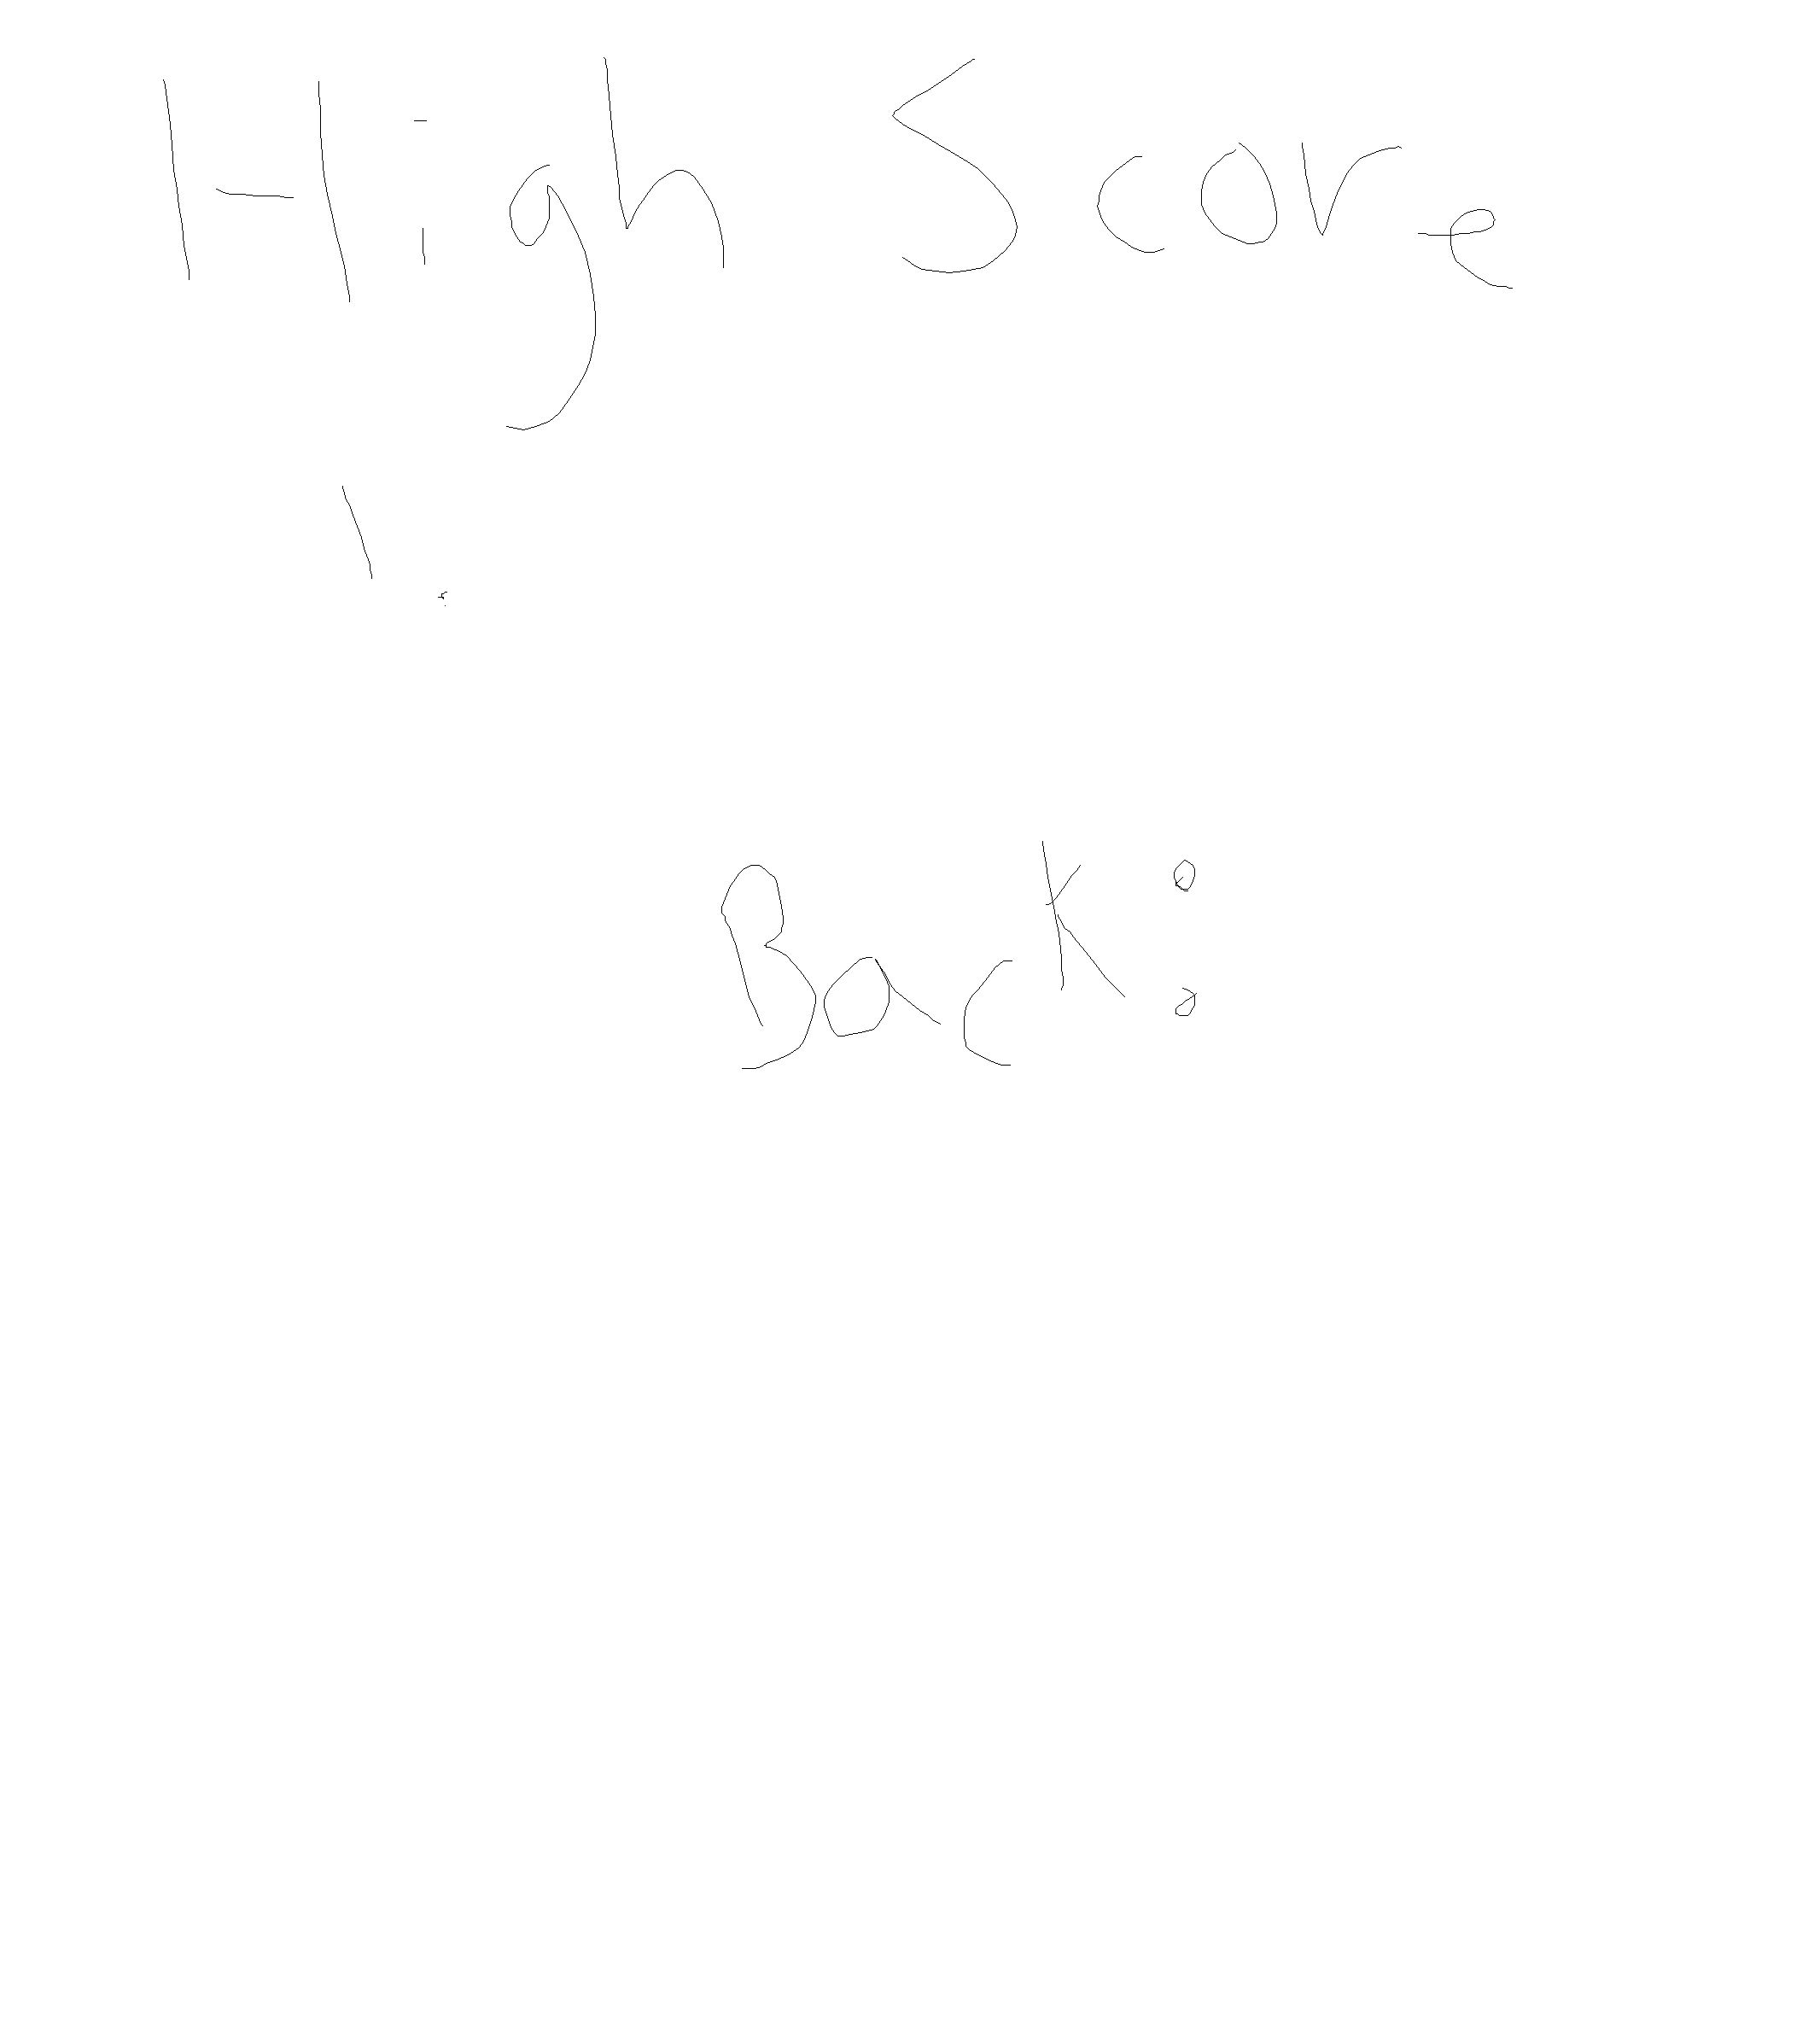 High Score
1.
Back: